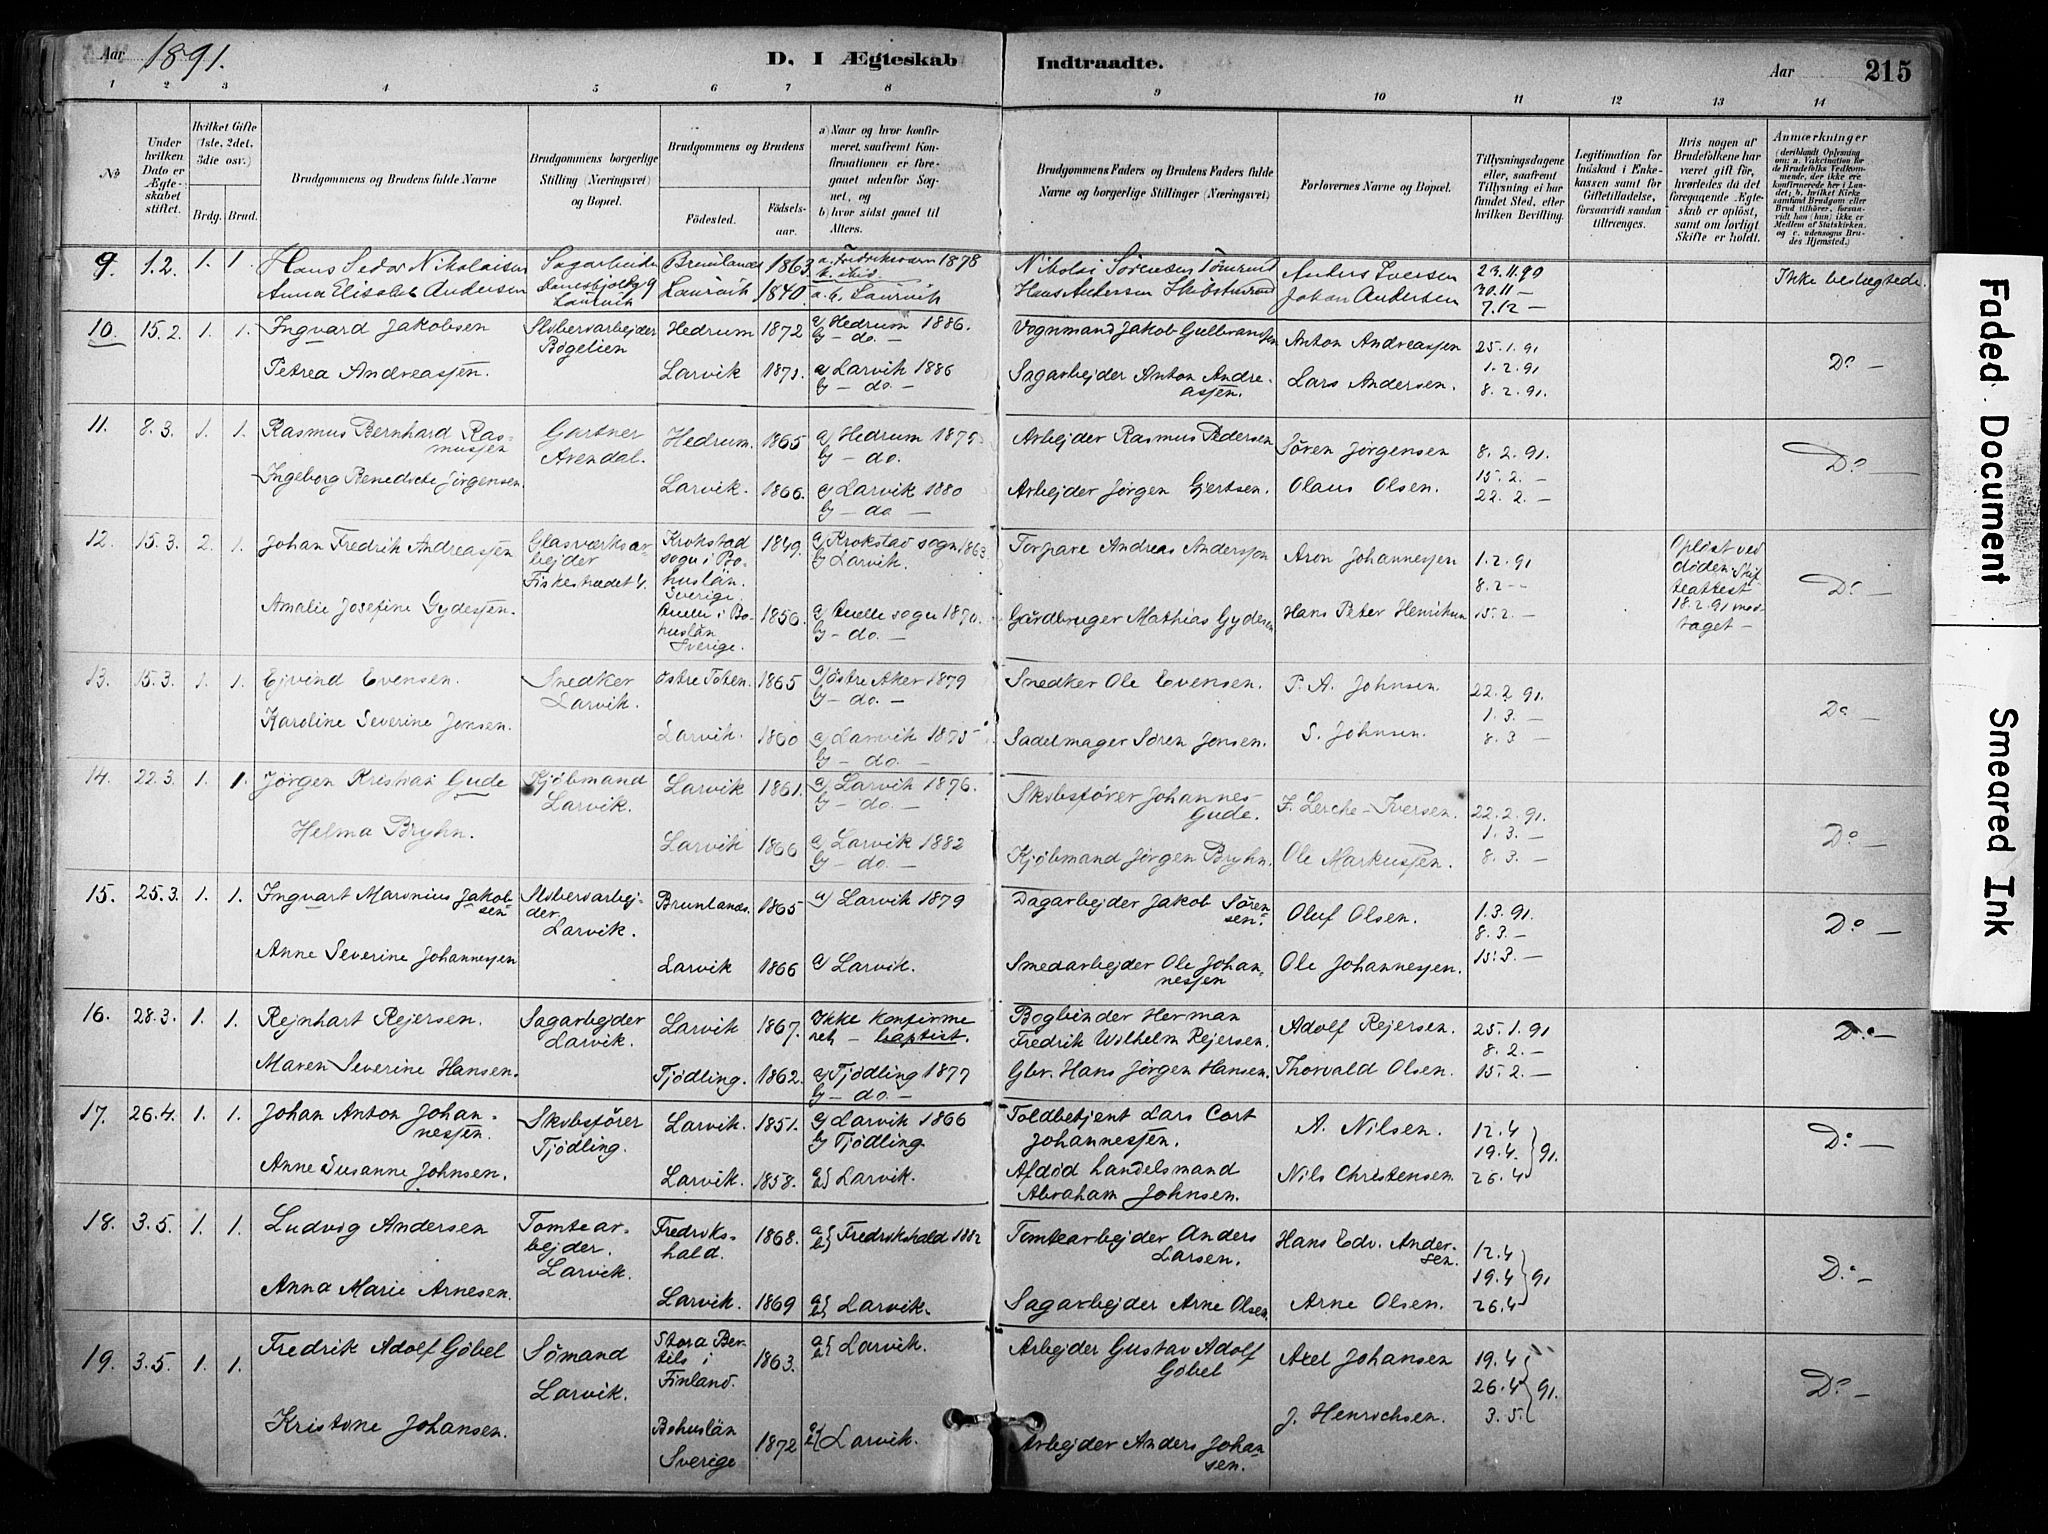 Aar 1891.
D. I Ægteskab Indtraadte.
Aar 215
1 2 3 4 5 6 7 8 9 10 11 12 13 14
No
Under hvilken Dato er Ægteskabet stiftet.
Hvilket Gifte (1ste, 2det, 3die osv.)
Brdg. Brud.
Brudgommens og Brudens fulde Navne
Brudgommens borgerlige Stilling (Næringsvei) og Bopæl.
Brudgommens og Brudens
Fødested. Fødselsaar.
a) Naar og hvor konfirmeret, saafremt Konfirmationen er foregaaet udenfor Sognet, og
b) hvor sidst gaaet til Alters.
Brudgommens Faders og Brudens Faders fulde Navne og borgerlige Stillinger (Næringsvei)
Forlovernes Navne og Bopæl.
Tillysningsdagene eller, saafremt Tillysning ei har fundet Sted, efter hvilken Bevilling.
Legitimation for Indskud i Enkekassen samt for Giftetilladelse, forsaavidt saadan tiltrænges.
Hvis nogen af Brudefolkene har været gift før, hvorledes da det foregaaende Ægteskab er opløst, samt om lovligt Skifte er holdt.
Anmærkninger
(deriblandt Oplysning om: a. Vaccination for de Brudefolks Vedkommende, der ikke ere konfirmerede her i Landet; b. hvilket Kirkesamfund Brudgom eller Brud tilhører, forsaavidt han (hun) ikke er Medlem af Statskirken, og c. udensogns Brudes Hjemsted.)
9. 1.2. 1. 1. Hans Nikolaisen Sagarbeider Brunlanæs 1863. a. Fredriksværn 1878 Nikolai Sørensen Tømmermd Anders Iversen 23.11.90 Ikke beslægtede.
Anna Elisabet Andersen Laurvik Laurvik 1840 a. b. Laurvik Hans Andersen Johan Andersen 30.11 –
7.12 –
10. 15.2. 1. 1. Ingvard Jakobsen Slibersarbejder Bøgelien Hedrum 1872 a) Hedrum 1886. b) – do. – Vognmand Jakob Gulbrandsen Anton Andreassen 25.1.91 Do –
Petrea Andreassen. Larvik 1871. a) Larvik 1886 b) – do. – Sagarbejder Anton Andreassen. Lars Andersen. 1.2.91
8.2.91.
11. 8.3. 1. 1. Rasmus Bernhard Rasmussen Gartner Arendal. Hedrum. 1865 a) Hedrum 1879. b) – do. Arbejder Rasmus Pedersen Søren Jørgensen 8.2.91. Do –
Ingeborg Benedicte Jørgensen. Larvik. 1866. a) Larvik 1880 b) – do – Arbejder Jørgen Gjertsen. Olaus Olsen. 15.2. –
22.2. –
12. 15.3. 2. 1. Johan Fredrik Andreassen Glasværksarbejder Fiskestrædet 4. Krokstad sogn i Bohuslän. Sverige. 1849. a) Krokstad sogn 1863. b) Larvik. Torpare Andreas Andersson Aron Johannessen 1.2.91 Opløst ved døden. Skifteattest 18.2.91 modtaget – Do –
8.2 – –
Amalie Josefine Gydesen. Quelle i Bohuslän. Sverige. 1856. a) Quelle sogn 1870. b) – do. – Gårdbruger Mathias Gydesen Hans Peter Henriksen 15.2. –
13. 15.3. 1. 1. Ejvind Evensen. Snedker Larvik. Østre Toten. 1865 a) Østre Aker 1879 b) – do. – Snedker Ole Evensen. P. A. Johnsen. 22.2.91. Do –
Karoline Severine Jonsen. Larvik. 1860 a) Larvik 1875 b) – do. – Sadelmager Søren Jonsen. S. Johnsen. 1.3. –
8.3 –
14. 22.3. 1. 1. Jørgen Kristian Gude Kjøbmand Larvik. Larvik 1861. a) Larvik 1876. b) – do. – Skibsfører Johannes Gude. F. Lerche-Iversen. 22.2.91. Do –
Helma Bryhn. Larvik 1866 a) Larvik 1882 b) – do. – Kjøbmand Jørgen Bryhn. Ole Markussen. 1.3. –
8.3. –
15. 25.3. 1. 1. Ingvart Maronius Jakobsen Slibersarbejder. Larvik. Brunlanæs. 1865 a) Larvik 1879 Dagarbejder Jakob Sørensen. Oluf Olsen. 1.3.91. Do –
8.3. –
Anne Severine Johannessen Larvik 1866 a) Larvik. Smedarbejder Ole Johannessen Ole Johannessen. 15.3. –
16. 28.3. 1. 1. Rejnhart Rejersen. Sagarbejder Larvik. Larvik 1867. Ikke konfirmeret – baptist. Bogbinder Herman Fredrik Wilhelm Rejersen. Adolf Rejersen. 25.1.91 Do –
8.2. –
Maren Severine Hansen. Tjødling. 1862. a) Tjødling 1877 b) – do. – Gbr. Hans Jørgen Hansen. Thorvald Olsen. 15.2. –
17. 26.4. 1. 1. Johan Anton Johannessen. Skibsfører Tjødling. Larvik. 1851. a) Larvik 1866 b) Tjødling Toldbetjent Lars Cort Johannessen. A. Nilsen. 12.4 Do –
19.4. } 91.
Anne Susanne Johnsen. Larvik. 1858. a) b) Larvik. Afdød Landelsmand Abraham Johnsen. Nils Christensen 26.4
18. 3.5. 1. 1. Ludvig Andersen Tomtearbejder. Larvik. Fredrikshald. 1868. a) b) Fredrikshald 1882 Tomtearbejder Anders Larsen. Hans Edv. Andersen. 12.4 Do –
19.4 } 91
Anna Marie Arnesen. Larvik. 1869 a) b) Larvik. Sagarbejder Arne Olsen. Arne Olsen. 26.4
19. 3.5. 1. 1. Fredrik Adolf Göbel Sømand Larvik. Stora Bertils i Finland. 1863. a) b) Larvik. Arbejder Gustav Adolf Göbel Axel Johansen 19.4 Do –
26.4 } 91.
Kristine Johansen. Bohuslän Sverige 1872 a) b) Larvik. Arbejder Anders Johansen. J. Henrichsen. 3.5.
Faded Document
Smeared Ink